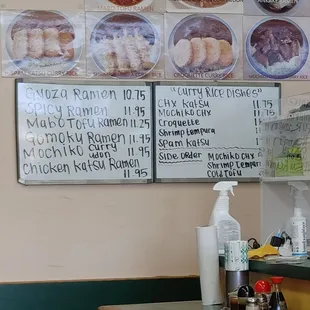 Gyoza Ramen 10.75
Spicy Ramen 11.75
Mabo Tofu Ramen 11.25
Gomoku Ramen 11.95
Mochiko Curry udon 11.95
Chicken Katsu Ramen
11.95
"Curry Rice Dishes"
Chx Katsu 11.75
Mochiko Chx
Croquette
Shrimp Tempura
Spam Katsu
Side order Mochiko Chx
Shrimp Tempura
Cold Tofu